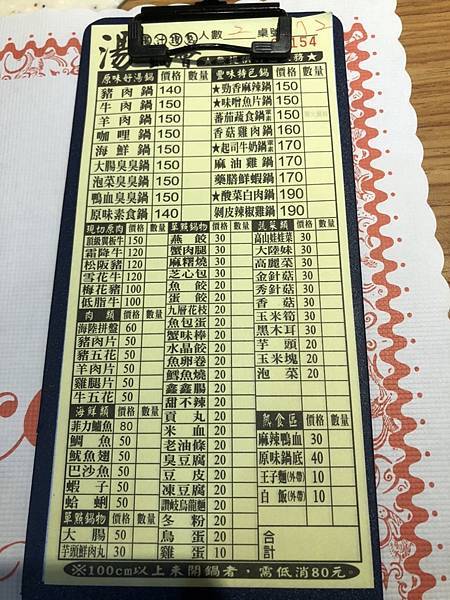 湯 人數 2 桌號
154
原味好湯鍋 價格 數量
豬肉鍋 140
牛肉鍋 150
羊肉鍋 150
咖哩鍋 150
海鮮鍋 150
大腸臭臭鍋 150
泡菜臭臭鍋 150
鴨血臭臭鍋 150
原味素食鍋 140
豐味特色鍋 價格 數量
★勁香麻辣鍋 150
★味噌魚片鍋 150
番茄蔬食鍋 150
香菇雞肉鍋 160
★起司牛奶鍋 170
麻油雞鍋 170
藥膳鮮蝦鍋 170
★酸菜白肉鍋 190
剝皮辣椒雞鍋 190
現切原肉 價格 數量
頂級翼板牛 150
霜降牛 120
松阪豬 120
雪花牛 120
梅花豬 100
低脂牛 100
肉類 價格 數量
海陸拼盤 60
豬肉片 50
豬五花 50
羊肉片 50
雞腿片 50
牛五花 50
海鮮類 價格 數量
菲力鱸魚 80
鯛魚 50
魷魚翅 50
巴沙魚 50
蝦子 50
蛤蜊 50
單點鍋物 價格 數量
大腸 50
芋頭鮮肉丸 30
單點鍋物 價格 數量
燕餃 30
蟹肉腿 30
麻糬燒 30
芝心包 30
魚餃 20
蛋餃 20
九層花枝 20
魚包蛋 20
蟹味棒 20
水晶餃 20
魚卵卷 20
鱈魚燒 20
鑫鑫腸 20
甜不辣 20
貢丸 20
米血 20
老油條 20
臭豆腐 20
豆皮 20
凍豆腐 20
讚岐烏龍麵 20
冬粉 20
鳥蛋 20
雞蛋 10
蔬菜類 價格 數量
高山娃娃菜 30
大陸妹 30
高麗菜 30
金針菇 30
秀針菇 30
香菇 30
玉米筍 30
黑木耳 30
芋頭 20
玉米塊 20
泡菜 20
熟食區 價格 數量
麻辣鴨血 30
原味鍋底 40
王子麵(外帶) 10
白飯(外帶) 10
合計
※100cm以上未開鍋者，需低消80元。